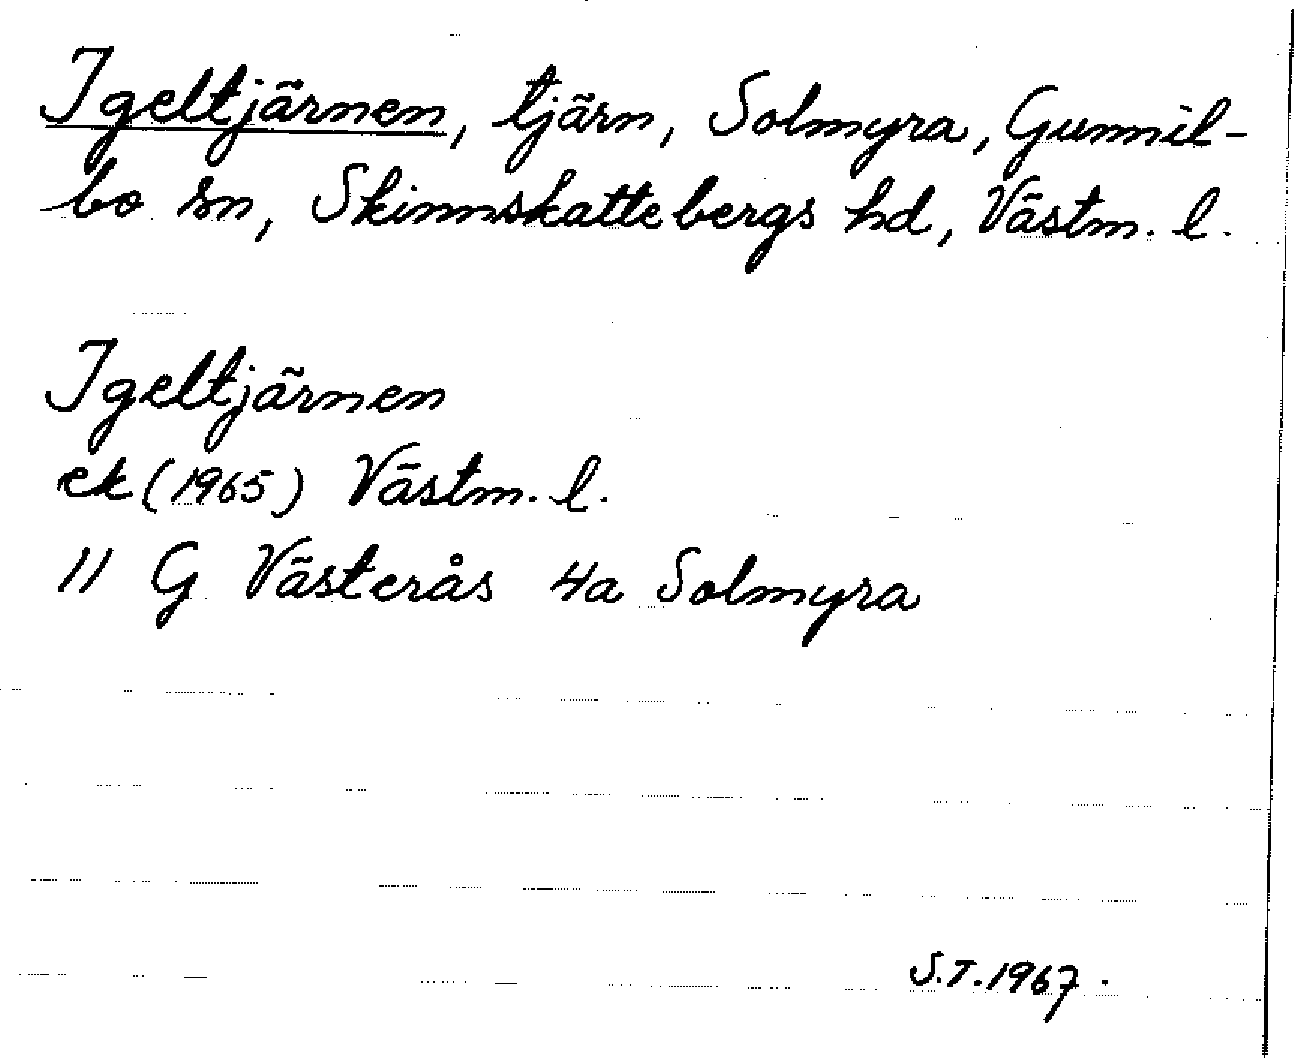 Igeltjärnen, tjärn, Solmyra, Gunnil-
bo sn, Skinnskattebergs hd, Västm. l.
Igeltjärnen
ek (1965) Västm. l.
11 G Västerås 4a Solmyra
S.T. 1967.